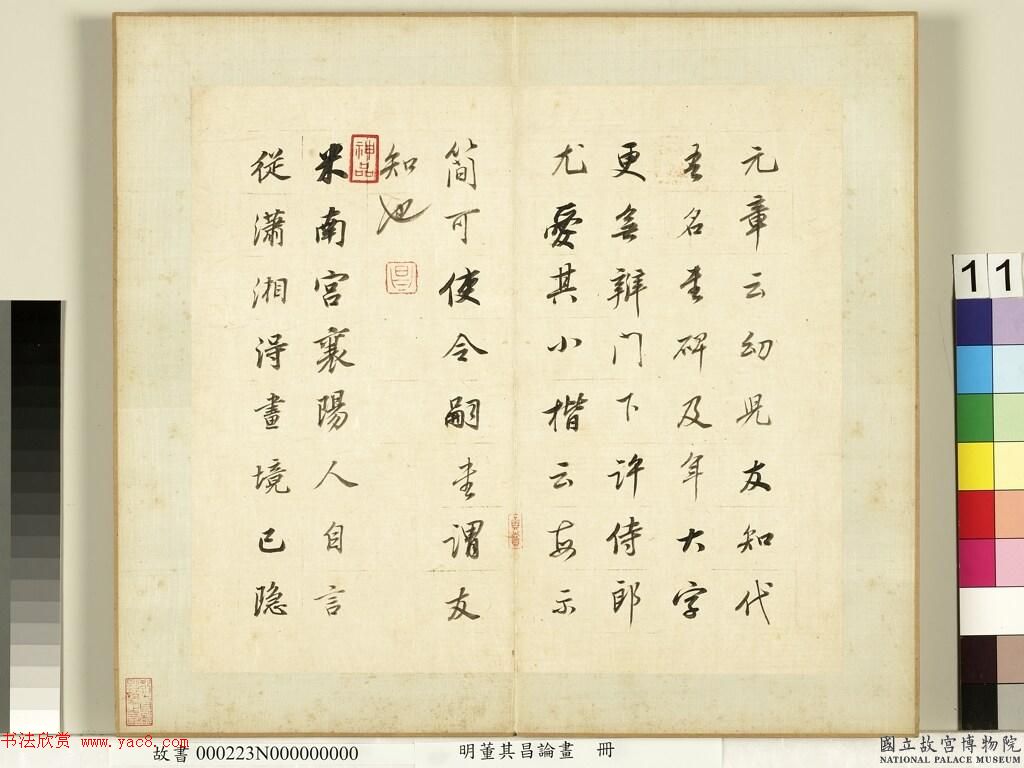 元章云幼兒友知代
吾名書碑及年大字
更無辨門下許侍郎
尤愛其小楷云每示
簡可使令嗣書謂友
知也
神品
米南宮襄陽人自言
從瀟湘得畫境已隐
11
书法欣赏 www.yac8.com
故書 000223N000000000
明董其昌論畫 冊
國立故宮博物院
NATIONAL PALACE MUSEUM